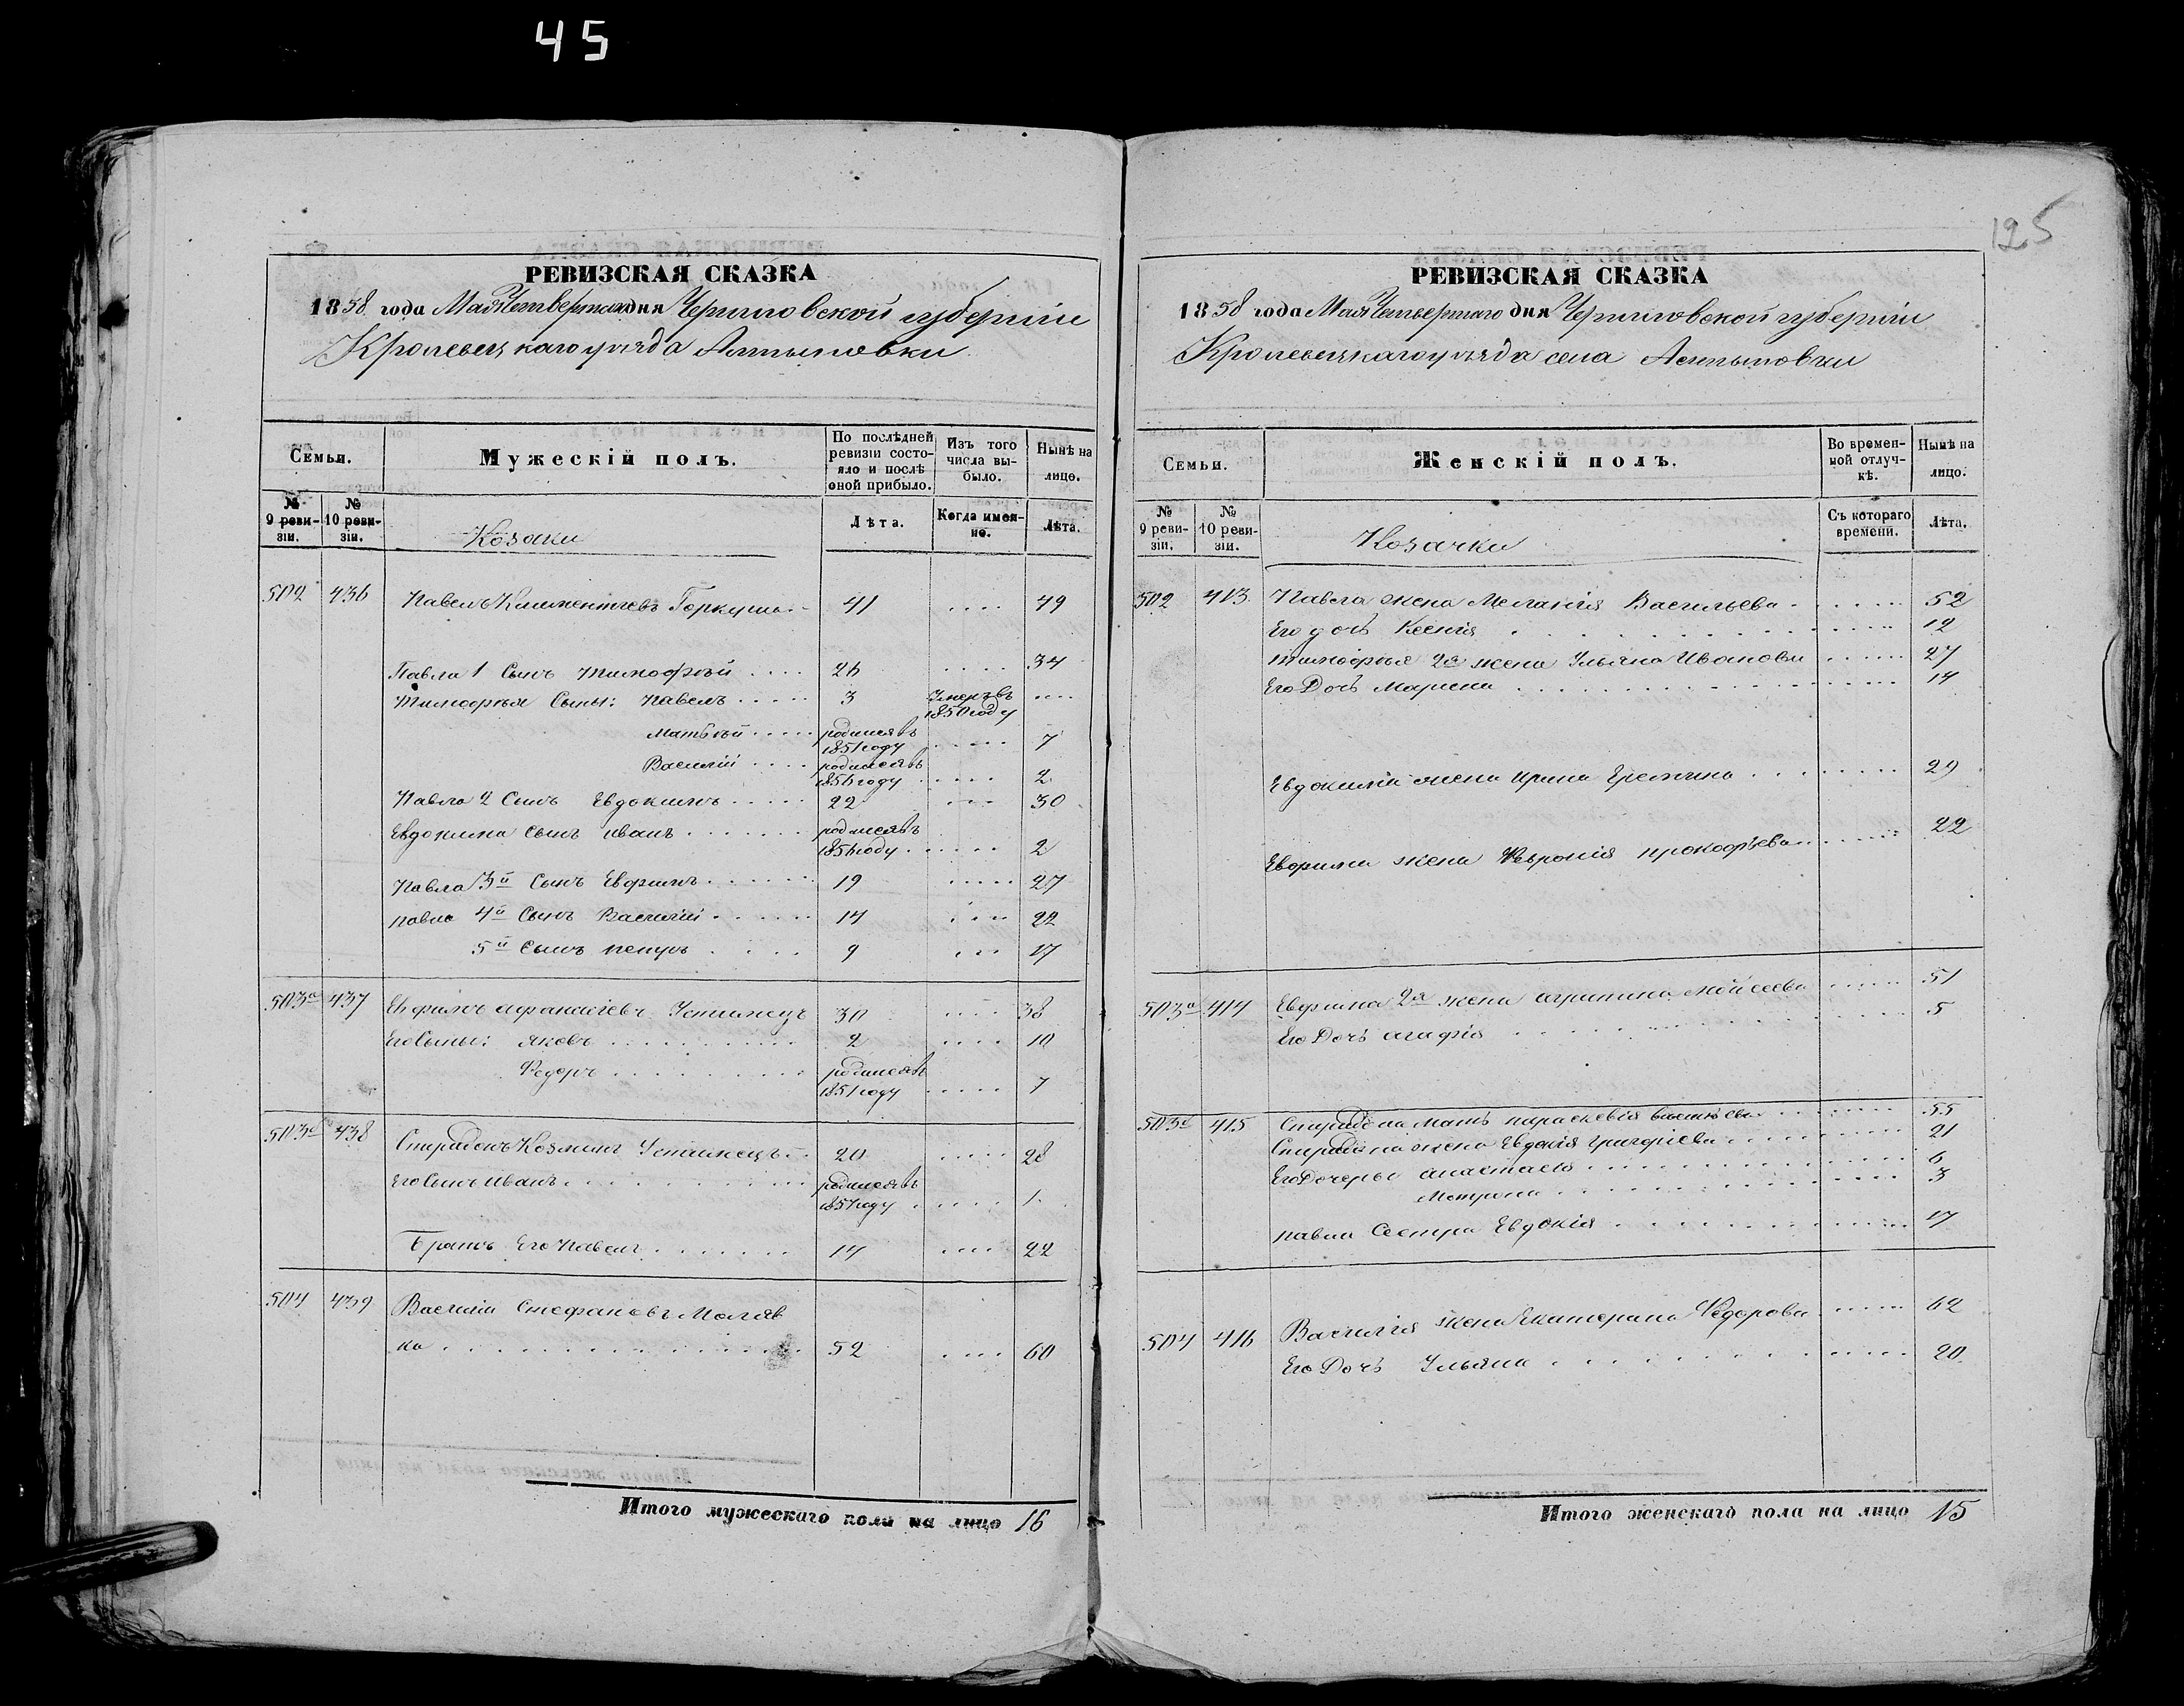 45
125
РЕВИЗСКАЯ СКАЗКА
1858 года Мая Четвертаго дня Черниговской губернiи
Кролевецкаго уѣзда Алтыновки
Семьи.
Мужескiй полъ.
По послѣдней ревизiи состояло и послѣ оной прибыло.
Изъ того числа выбыло.
Нынѣ на лицо.
№ 9 ревизiи.
№ 10 ревизiи.
Козаки
Лѣта.
Когда именно.
Лѣта.
502 436 Павелъ Климентiевъ Горкуша 41 .... 49
Павла 1 Сынъ Тимофѣй .... 26 .... 34
Тимофѣя Сыны: Павелъ .... 3 Умеръ въ 1850 году ....
Матвѣй .... родился въ 1851 году .... 7
Василiй .... родился въ 1856 году .... 2
Павла 2 Сынъ Евдокимъ .... 22 .... 30
Евдокима Сынъ иванъ .... родился въ 1856 году .... 2
Павла 3й Сынъ Евфимъ .... 19 .... 27
павла 4й Сынъ Василiй .... 14 .... 22
5й Сынъ петръ .... 9 .... 17
503а 437 Евфимъ афанасiевъ Устимецъ 30 .... 38
Его Сыны: яковъ .... 2 .... 10
Федоръ .... родился въ 1851 году .... 7
503б 438 Спиридонъ Козминъ Устимецъ .. 20 .... 28
Его Сынъ иванъ .... родился въ 1857 году .... 1
Братъ Его Павелъ .... 14 .... 22
504 439 Василiй Стефановъ Моляв
ка .... 52 .... 60
Итого мужескаго пола на лицо 16
РЕВИЗСКАЯ СКАЗКА
1858 года Мая Четвертаго дня Черниговской губернiи
Кролевецкаго уѣзда села Алтыновки
Семьи.
Женскiй полъ.
Во временной отлучкѣ.
Нынѣ на лицо.
№ 9 ревизiи.
№ 10 ревизiи.
Козачки
Съ котораго времени.
Лѣта.
502 413 Павла жена Меланiя Васильева .... 52
Его дочь Ксенiя .... 12
Тимофѣя 2я жена Ульяна Иванова .... 27
Его Дочь Марина .... 14
Евдокима жена ирина Еремина .... 29
Евфима жена Февронiя прокофьева .... 22
503а 414 Евфима 2я жена агрипина Мойсеева .... 51
Его Дочь агафiя .... 5
503б 415 Спиридона Мать параскевiя .... 55
Спиридона жена Евдокiя григорiева .... 21
Его Дочеры анастасiя .... 6
Матрона .... 3
павла Сестра Евдокiя .... 17
504 416 Василiя жена Екатерина Федорова .... 62
Его Дочь Ульяна .... 20
Итого женскаго пола на лицо 15